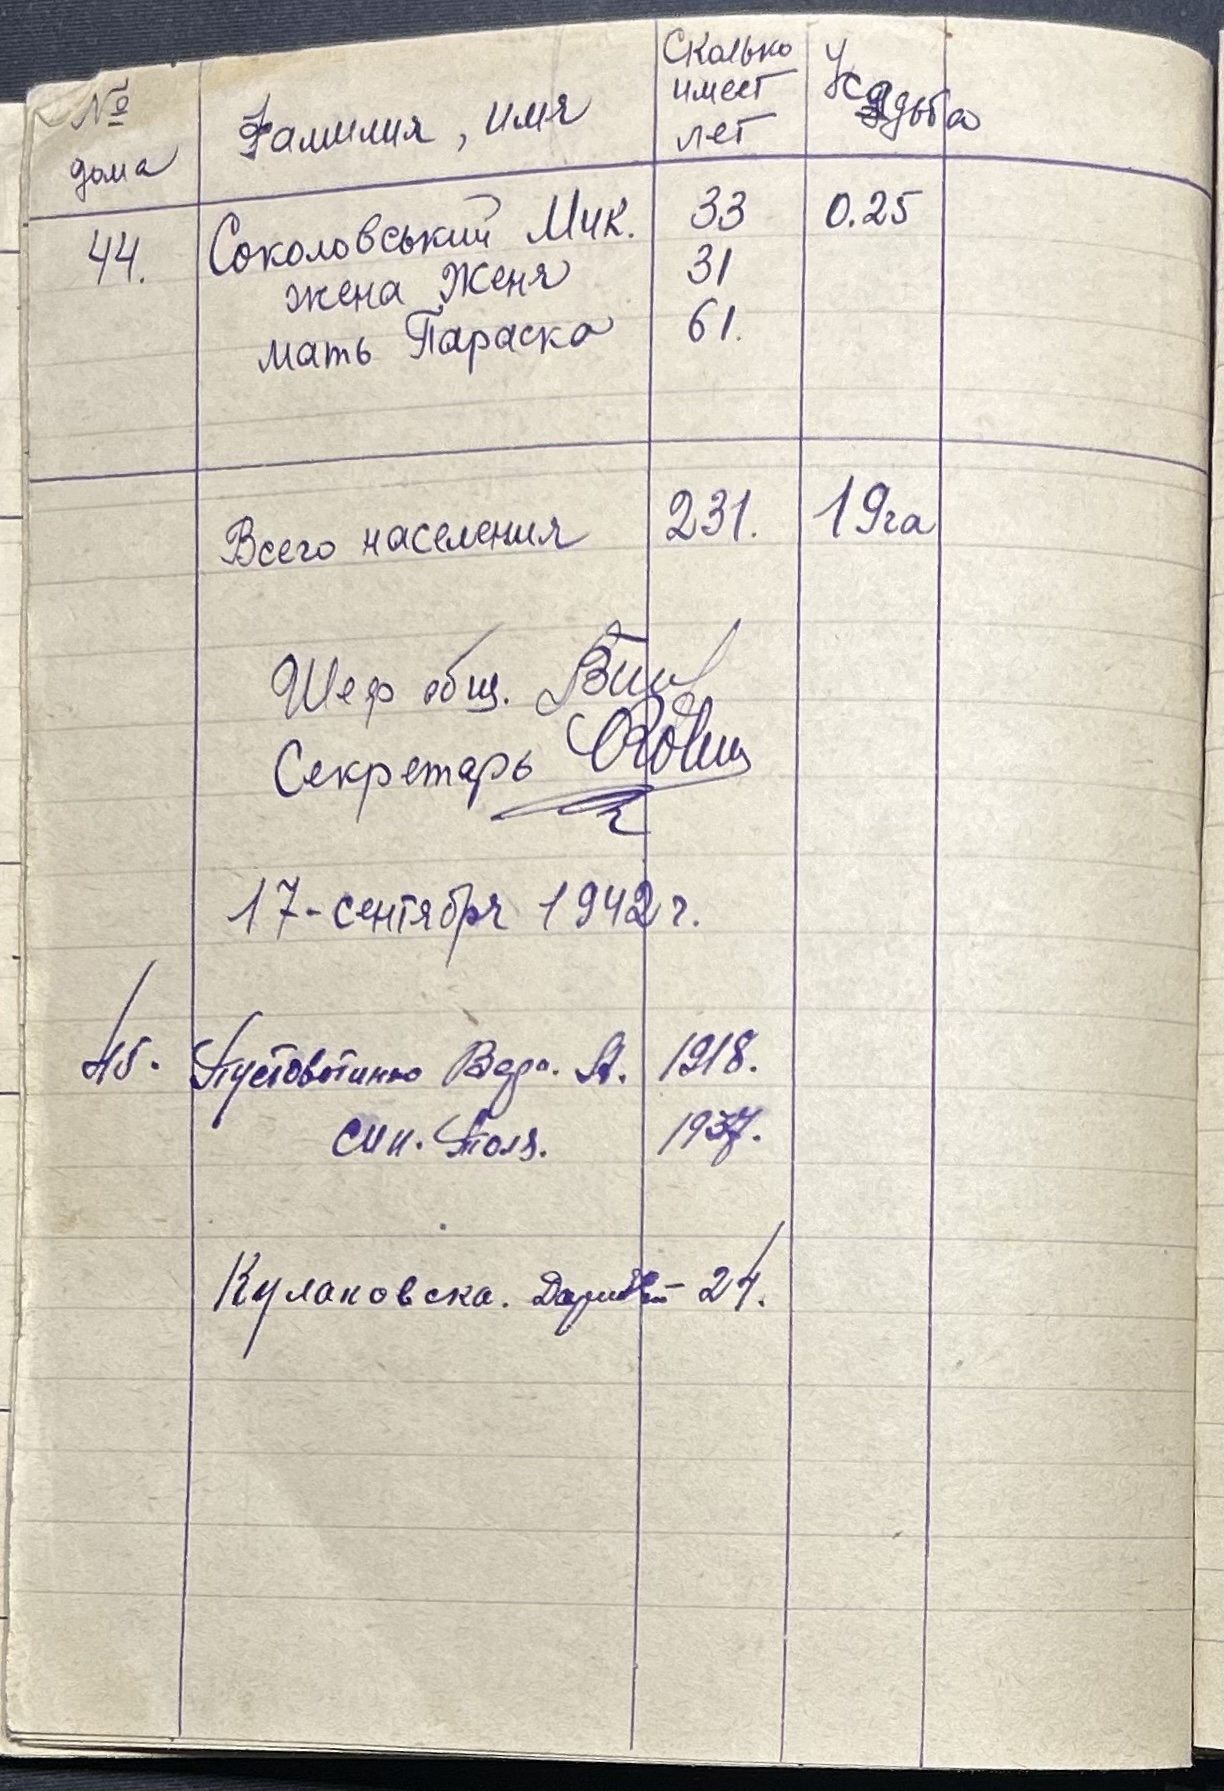 № дома Фамилия, имя Сколько имеет лет Усадьба
44. Соколовський Мик. 33 0.25
жена Женя 31
мать Параска 61.
Всего населения 231. 19га
Шеф общ.
Секретарь
17-сентября 1942 г.
45. 1918.
син. Толя. 1937.
Кулаковска. 24.